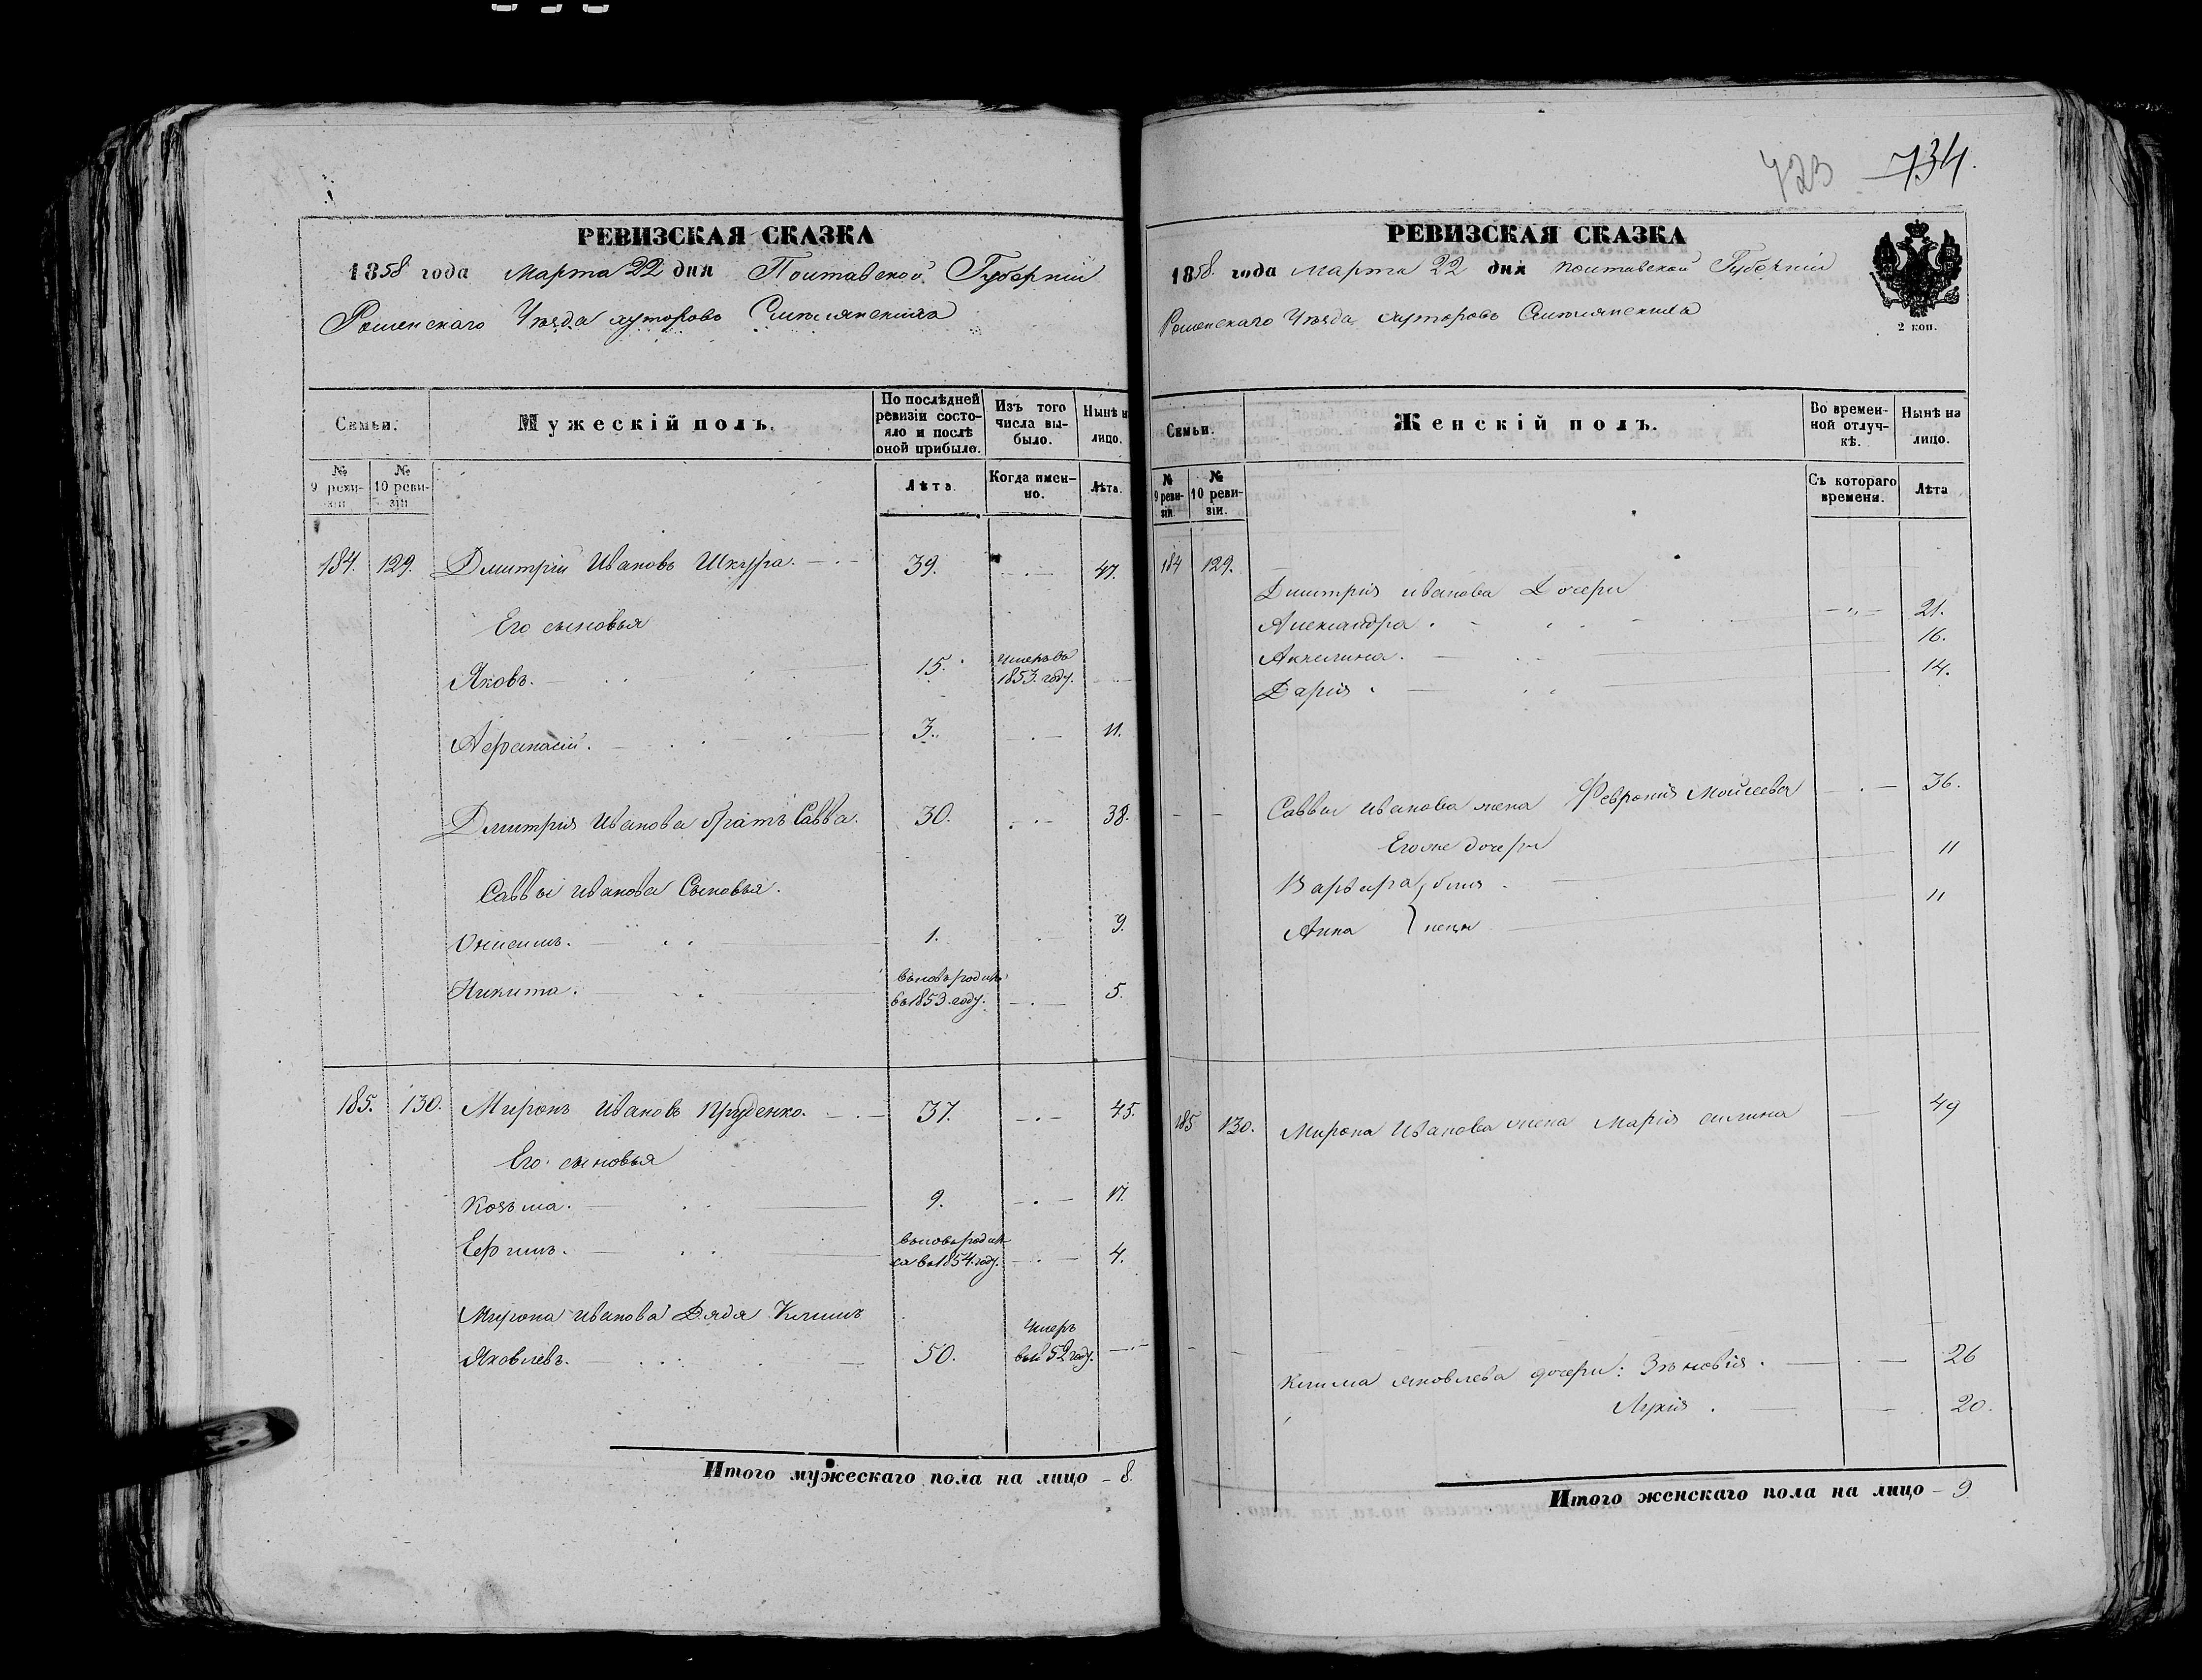 РЕВИЗСКАЯ СКАЗКА
1858 года марта 22 дня Полтавской Губерніи
Роменскаго Уѣзда хуторовъ
Семьи.
Мужескій полъ.
По послѣдней ревизіи состояло и послѣ оной прибыло.
Изъ того числа выбыло.
Нынѣ н
лицо.
№ 9 ревизіи
№ 10 ревизіи
Лѣта
Когда именно.
Лѣта.
184. 129. Дмитрій Ивановъ Шкурра. 39. 47.
Его сыновья
Яковъ. 15. умеръ въ 1853. году.
Афанасій. 3. 11.
Дмитрія Иванова братъ Савва. 30. 38.
Саввы Иванова Сыновья.
Онисимъ. 1. 9.
Никита. вновь родил. въ 1853. году. 5.
185. 130. Миронъ Ивановъ Пруденко. 37. 45.
Его сыновья
Козьма. 9. 17.
Ефимъ. вновь родил-
ся въ 1854. году. 4.
Мирона Иванова Дядя Климъ
Яковлевъ. 50. Умеръ
въ 52 году.
Итого мужескаго пола на лицо – 8.
723 734.
РЕВИЗСКАЯ СКАЗКА
1858. года марта 22 дня Полтавской Губерніи
Роменскаго Уѣзда хуторовъ
2 коп.
Семьи.
Женскій полъ.
Во временной отлучкѣ.
Нынѣ на лицо.
№ 9 ревизіи.
№ 10 ревизіи.
Съ котораго времени.
Лѣта
184 129.
Дмитрія Иванова Дочери
Александра. 21.
Акилина. 16.
Дарія. 14.
Саввы Иванова жена Февронія Моисеева 36.
Егоже дочери
Варвара близ 11
Анна нецы 11
185 130. Мирона Иванова жена Марія 49
Клима Яковлева дочери: Зѣновія. 26
Лукія. 20.
Итого женскаго пола на лицо – 9.